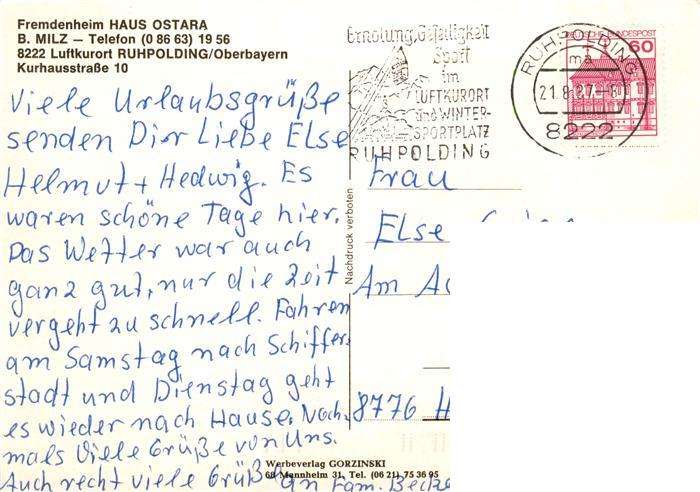 Fremdenheim HAUS OSTARA
B. MILZ — Telefon (0 86 63) 19 56
8222 Luftkurort RUHPOLDING/Oberbayern
Kurhausstraße 10
Viele Urlaubsgrüße
senden Dir Liebe Else
Helmut + Hedwig. Es
waren schöne Tage hier.
Das Wetter war auch
ganz gut, nur die Zeit
vergeht zu schnell. Fahren
am Samstag nach Schiffer-
stadt und Dienstag geht
es wieder nach Hause. Noch-
mals Viele Grüße von Uns.
Auch recht viele Grüße an Fam. Becke
Erholung, Geselligkeit
Sport
im
LUFTKURORT
und WINTER-
SPORTPLATZ
RUHPOLDING
RUHPOLDING
ma
21.8.87.-8
8222
DEUTSCHE BUNDESPOST
60
Nachdruck verboten
Frau
Else
Am
8776 H
Werbeverlag GORZINSKI
68 Mannheim 31, Tel. (06 21) 75 36 95